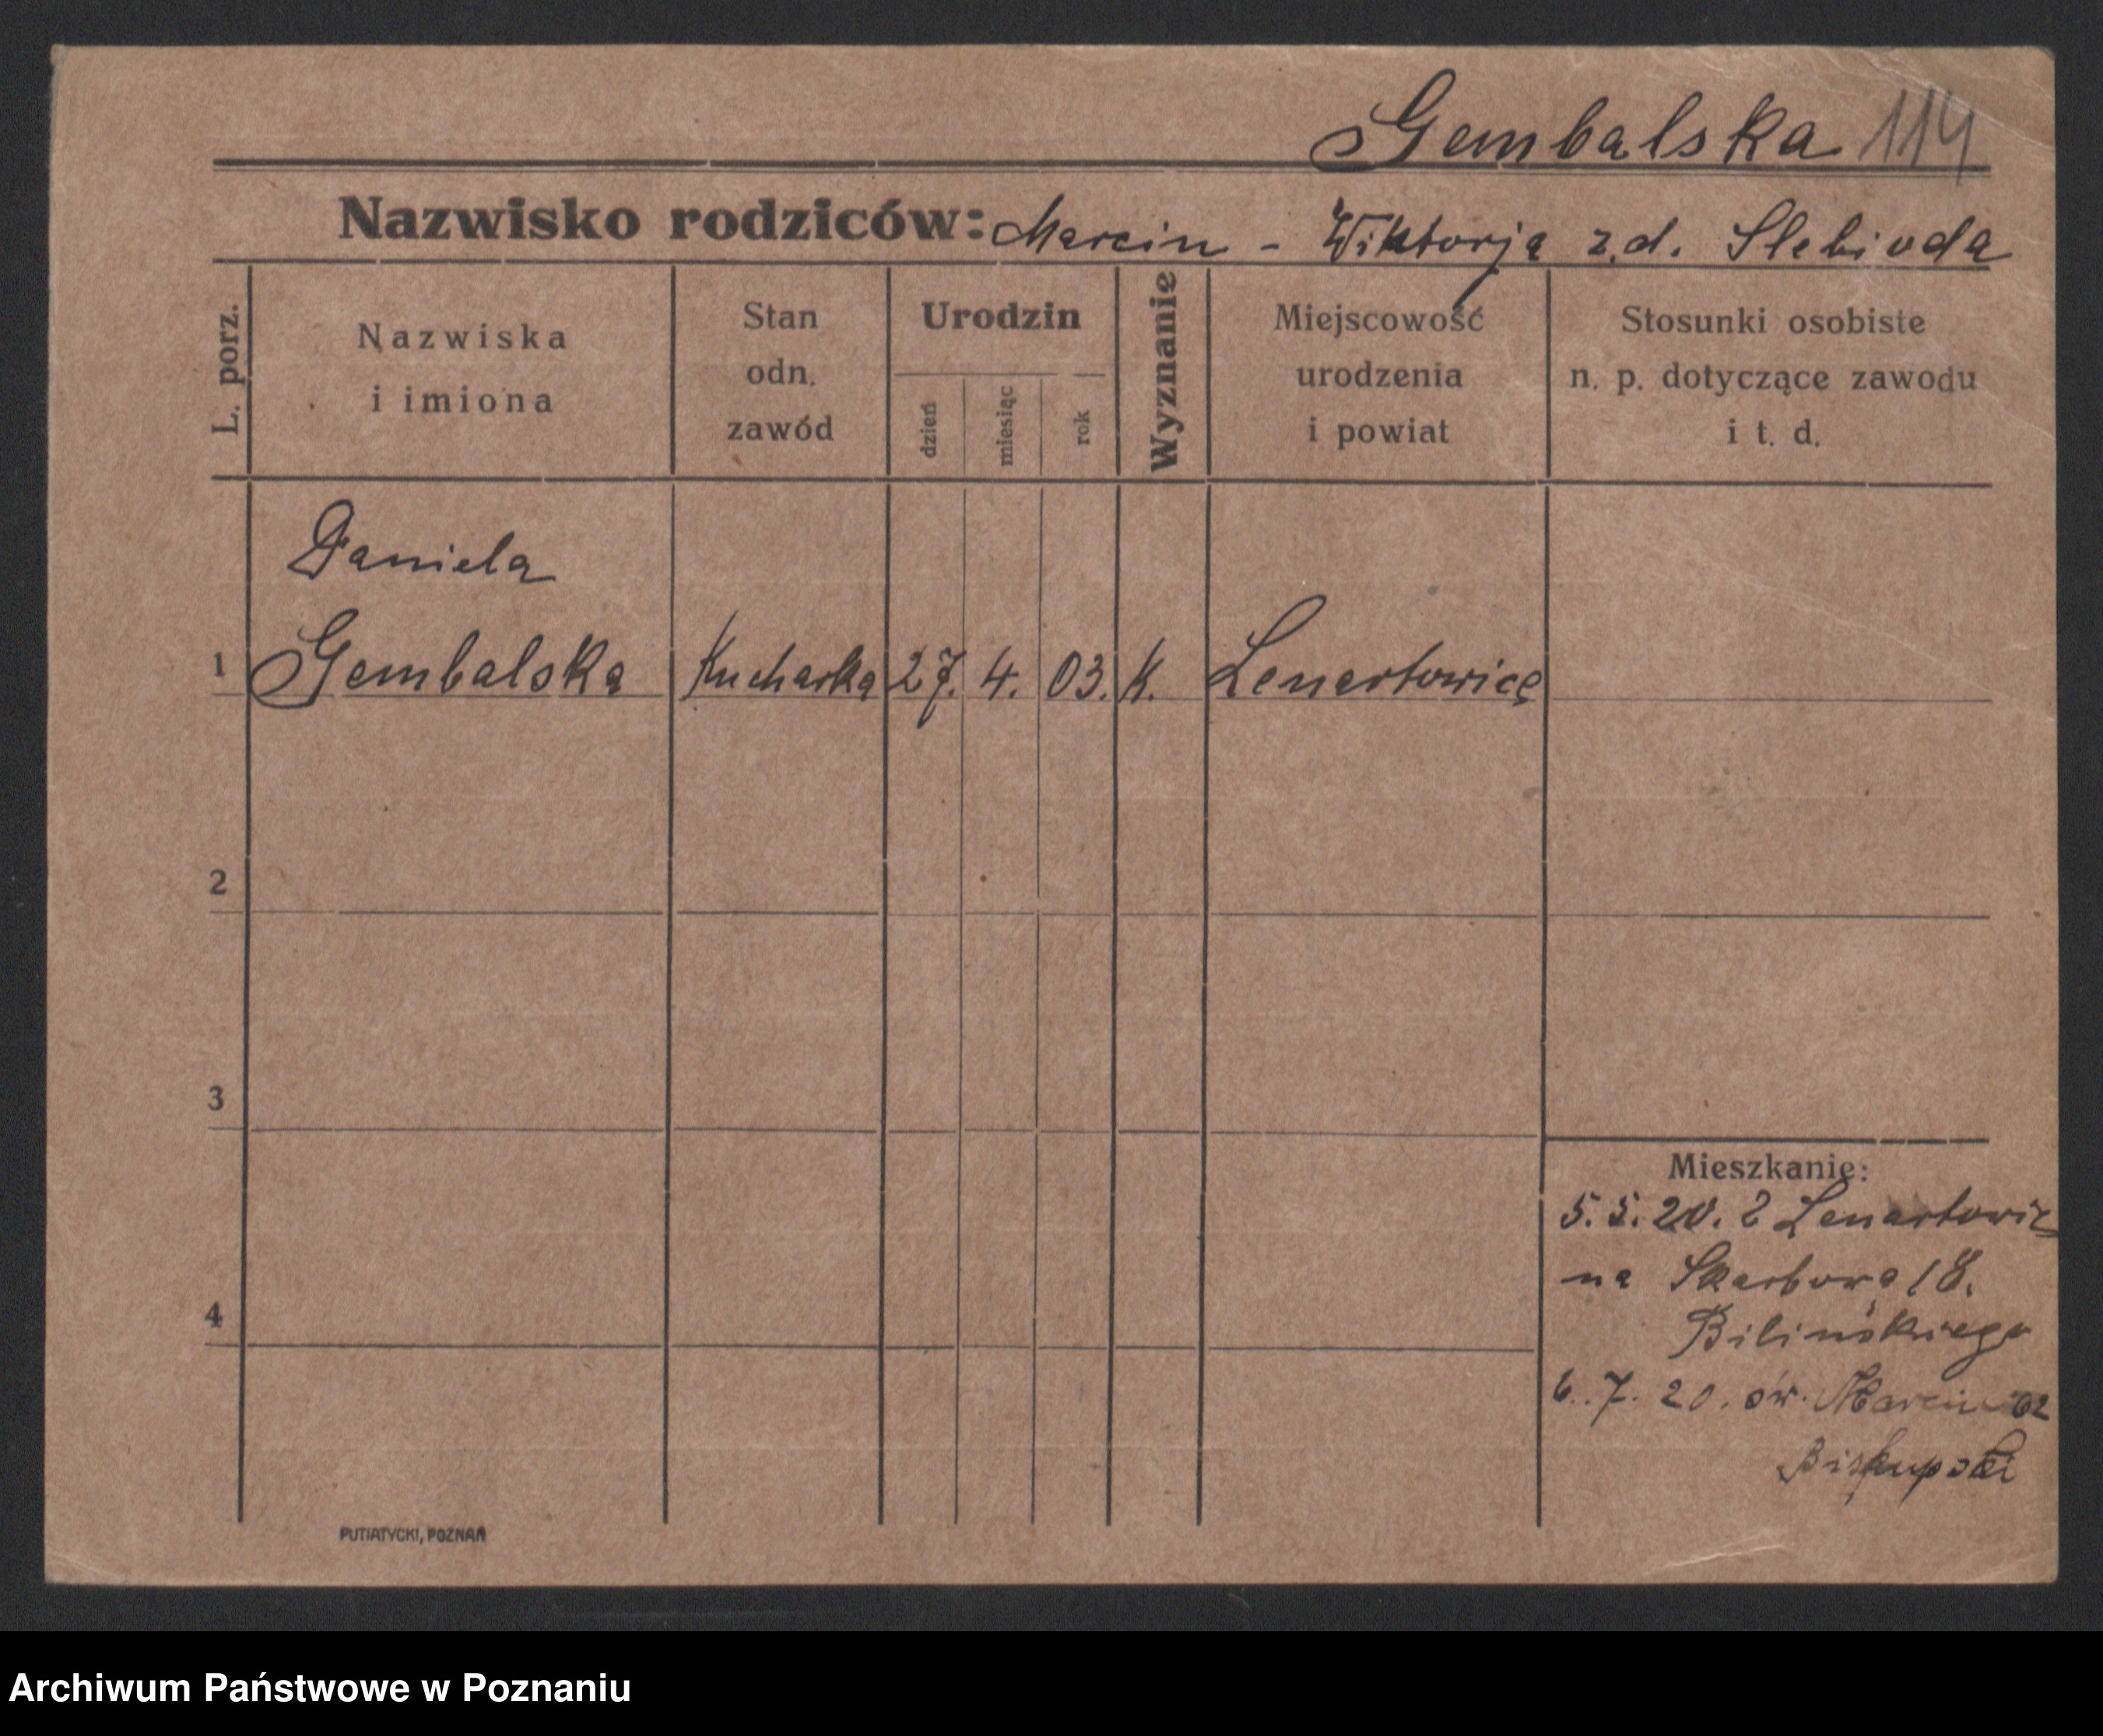 Gembalska 114
Nazwisko rodziców: Marcin - Wiktorja z.d. Slebioda
L. porz.
Nazwiska
i imiona
Stan
odn.
zawód
Urodzin
dzień
miesiąc
rok
Wyznanie
Miejscowość
urodzenia
i powiat
Stosunki osobiste
n. p. dotyczące zawodu
i t. d.
Daniela
1 Gembalska Kucharka 27. 4. 03. K. Lenartowice
2
3
4
Mieszkanie:
5. 5. 20. z Lenartowic
na Skarbowa 18.
Bilińskiego
6. 7. 20. św. Marcin 62
Biskupski
PUTIATYCKI, POZNAŃ
Archiwum Państwowe w Poznaniu